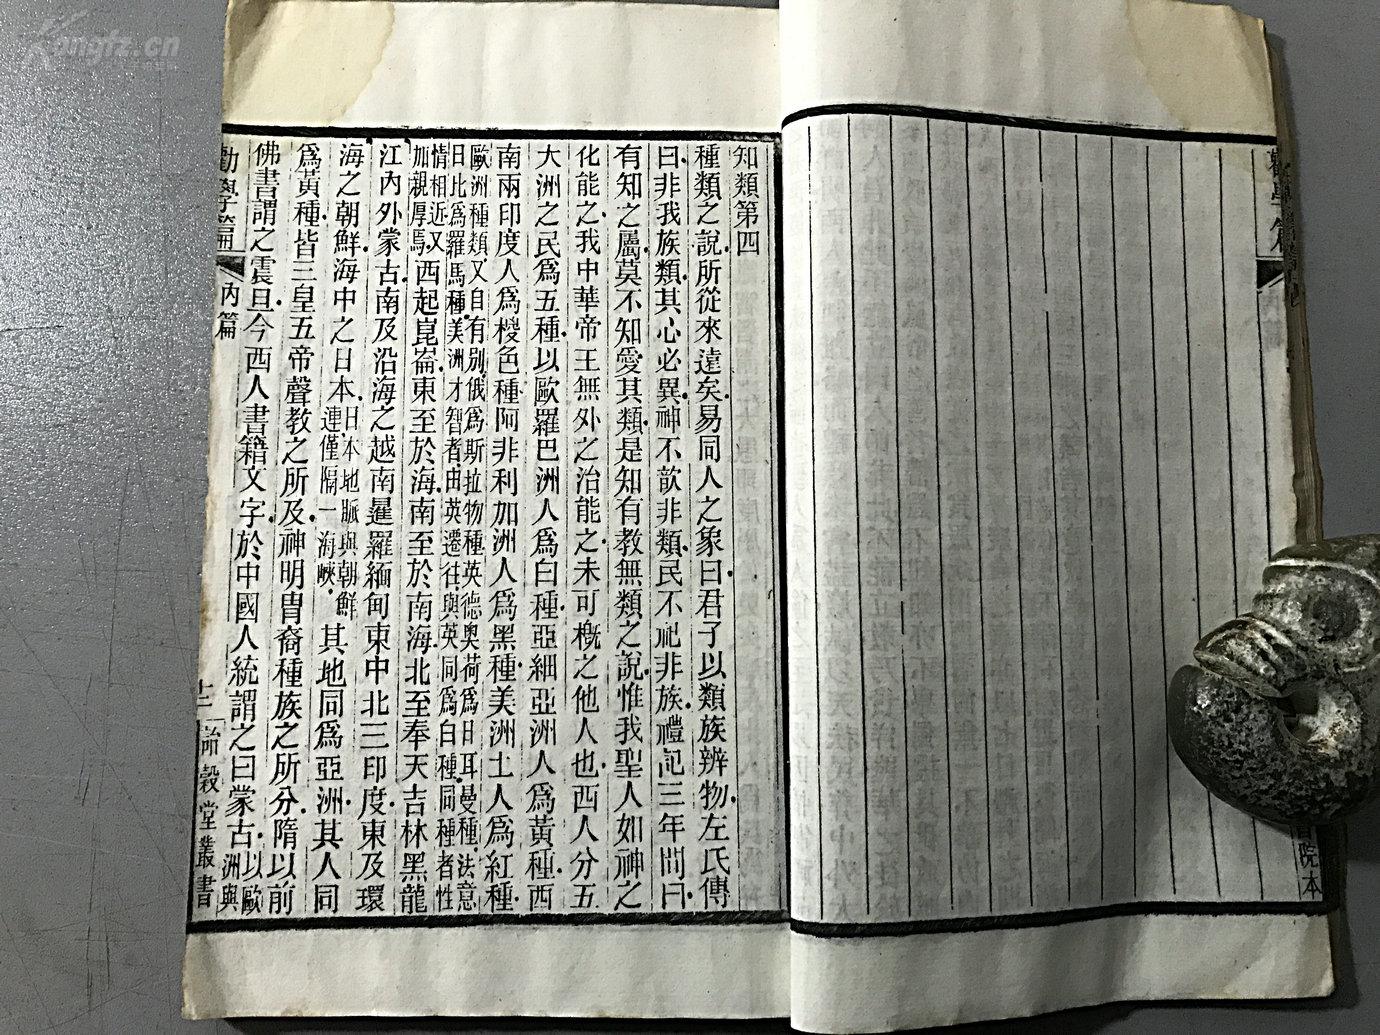 知類第四
種類之說所從來遠矣易同人之象曰君子以類族辨物左氏傳
曰非我族類其心必異神不歆非類民不祀非族禮記三年問曰
有知之屬莫不知愛其類是知有教無類之說惟我聖人如神之
化能之我中華帝王無外之治能之未可概之他人也西人分五
大洲之民爲五種以歐羅巴洲人爲白種亞細亞洲人爲黃種西
南兩印度人爲椶色種阿非利加洲人爲黑種美洲土人爲紅種
歐洲種類又自有別俄爲斯拉物種英德奧荷爲日耳曼種法意
日比爲羅馬種美洲才智者由英遷往與英同爲白種同種者性
情相近又
加親厚焉西起崑崙東至於海南至於南海北至奉天吉林黑龍
江內外蒙古南及沿海之越南暹羅緬甸東中北三印度東及環
海之朝鮮海中之日本日本地脈與朝鮮
連僅隔一海峽其地同爲亞洲其人同
爲黃種皆三皇五帝聲教之所及神明胄裔種族之所分隋以前
佛書謂之震旦今西人書籍文字於中國人統謂之曰蒙古以歐
洲與
勸學篇 內篇 十二 漸穀堂叢書
勸學篇
內篇
院本
Kongfz.cn